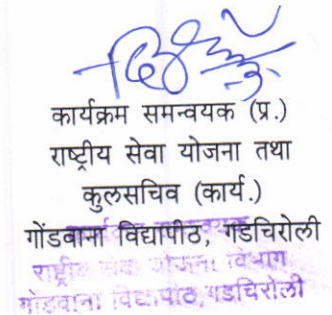 कार्यक्रम समन्वयक (प्र.)
राष्ट्रीय सेवा योजना तथा
कुलसचिव (कार्य.)
गोंडवाना विद्यापीठ, गडचिरोली
राष्ट्रीय सेवा योजना विभाग
गोंडवाना विद्यापीठ, गडचिरोली